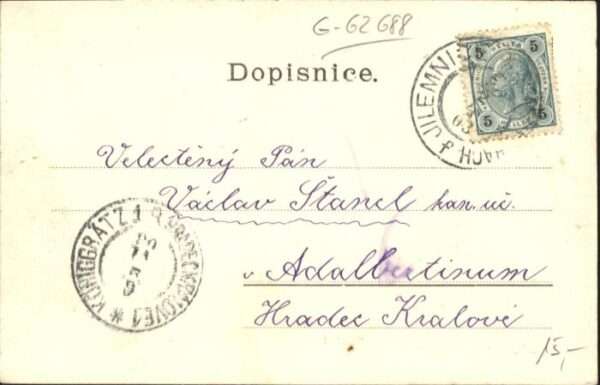 G-62 688
Dopisnice.
5 5
5 5
JILEMNI
Velectěný Pán
Václav Štancl kan. uč.
v Adalbertinum
Hradec Králové
KÖNIGGRÄTZ 1
15,-